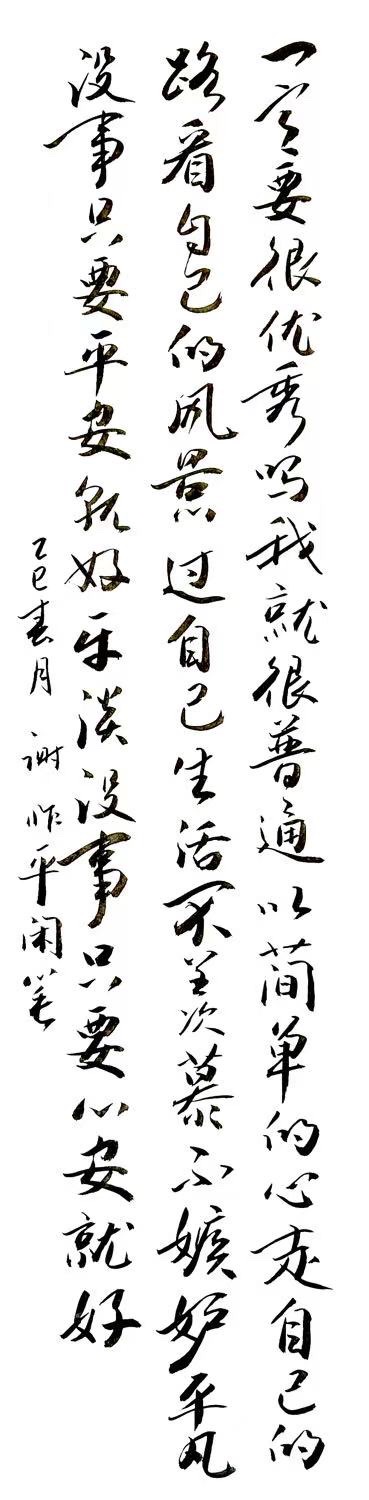 一定要很优秀吗我就很普通以简单的心走自己的
路看自己的风景过自己生活不羡慕不嫉妒平凡
没事只要平安就好平淡没事只要心安就好
乙巳春月 谢平闲笔